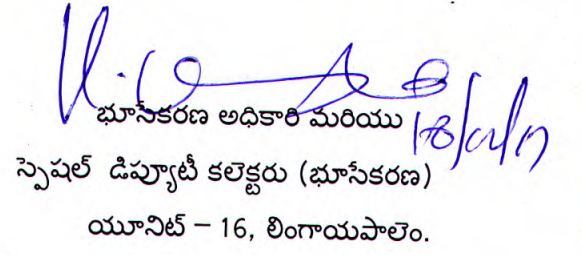 భూసేకరణ అధికారి మరియు
స్పెషల్ డిప్యూటీ కలెక్టరు (భూసేకరణ)
యూనిట్ – 16, లింగాయపాలెం.